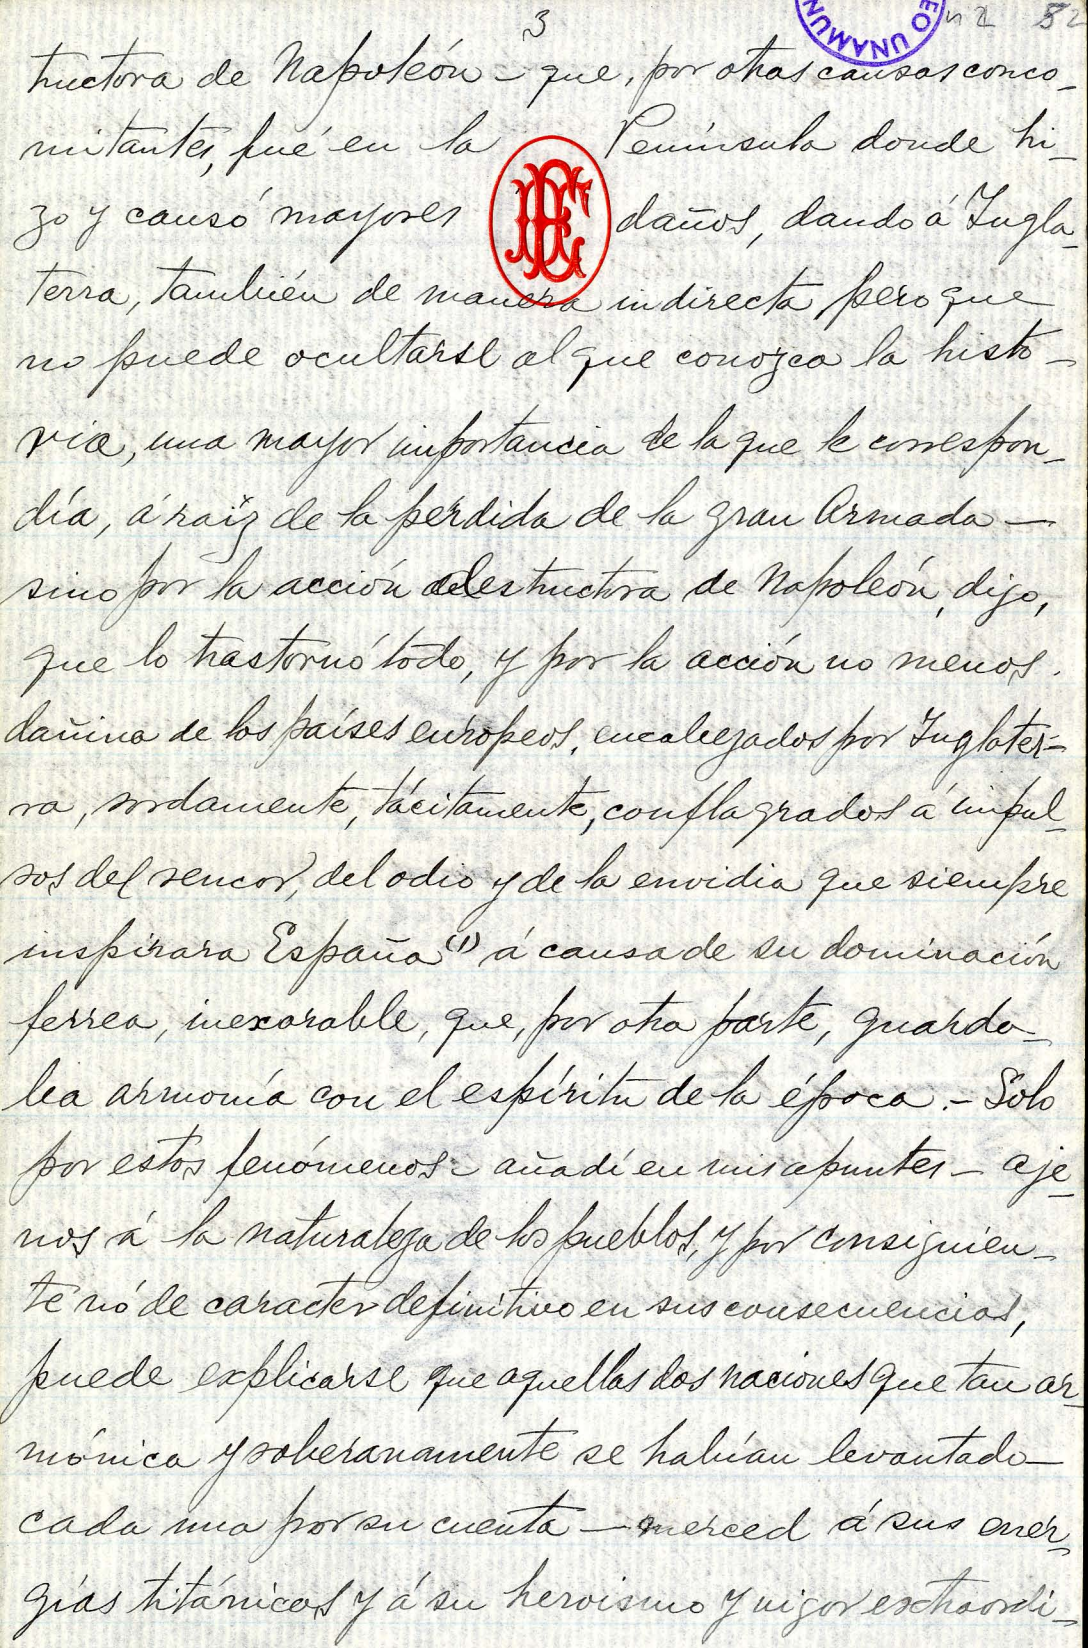 3
EO UNAMUN
tructora de Napoleón - que, por otras causas conco-
mitantes, fué en la Península donde hi-
zo y causó mayores daños, dando á Ingla-
terra, también de manera indirecta, pero que
no puede ocultarse al que conozca la histo-
ria, una mayor importancia de la que le correspon-
día, á raíz de la pérdida de la gran Armada -
sino por la acción destructora de Napoleón, digo,
que lo trastornó todo, y por la acción no menos
dañina de los países europeos, encabezados por Inglater-
ra, sordamente, tácitamente, conflagrados á impul-
sos del rencor, del odio y de la envidia que siempre
inspirara España (1) á causa de su dominación
ferrea, inexorable, que, por otra parte, guarda-
ba armonía con el espíritu de la época. - Sólo
por estos fenómenos - añadí en mis apuntes - aje-
nos á la naturaleza de los pueblos, y por consiguien-
te nó de caracter definitivo en sus consecuencias,
puede explicarse que aquellas dos naciones que tan ar-
mónica y soberanamente se habían levantado
cada una por su cuenta - merced á sus ener-
gías titánicas y á su heroismo y vigor extraordi-